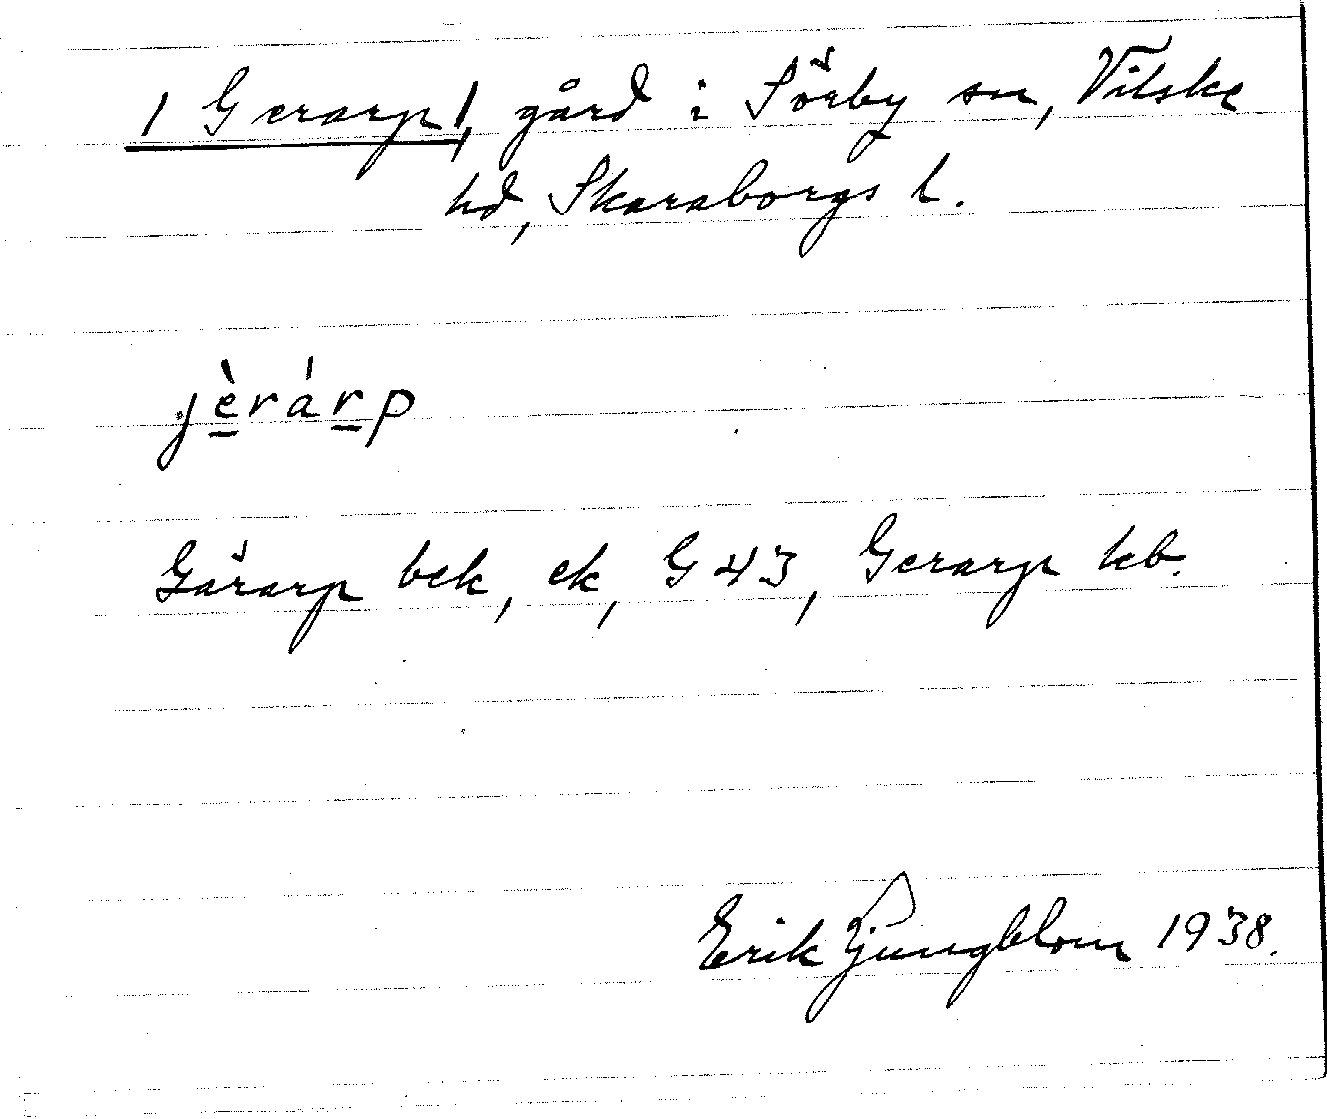 / Gerarp/, gård i Sörby sn, Vilske
hd, Skaraborgs l.
jèrárp
Gärarp bek, ek, G 43, Gerarp kb.
Erik Ljungblom 1938.